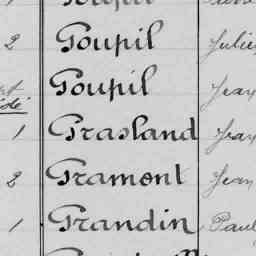 2 Goupil Julien
Goupil Jean
1 Grasland Jean
2 Gramont Jean
1 Grandin Paul